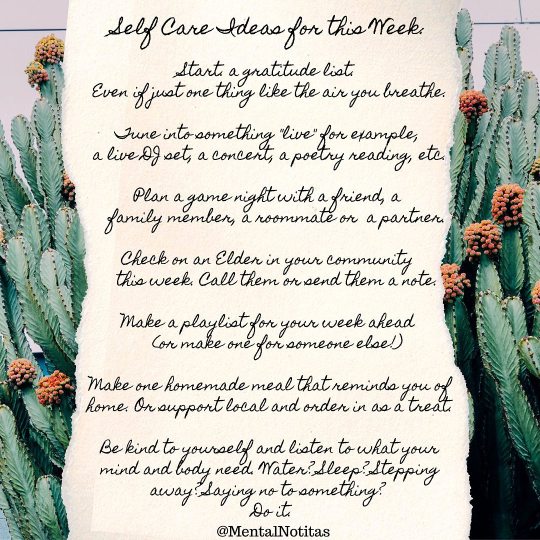 Self Care Ideas for this Week:
Start a gratitude list.
Even if just one thing like the air you breathe.
Tune into something "live" for example,
a live DJ set, a concert, a poetry reading, etc.
Plan a game night with a friend, a
family member, a roommate or a partner.
Check on an Elder in your community
this week. Call them or send them a note.
Make a playlist for your week ahead
(or make one for someone else!)
Make one homemade meal that reminds you of
home. Or support local and order in as a treat.
Be kind to yourself and listen to what your
mind and body need. Water? Sleep? Stepping
away? Saying no to something?
Do it.
@MentalNotitas